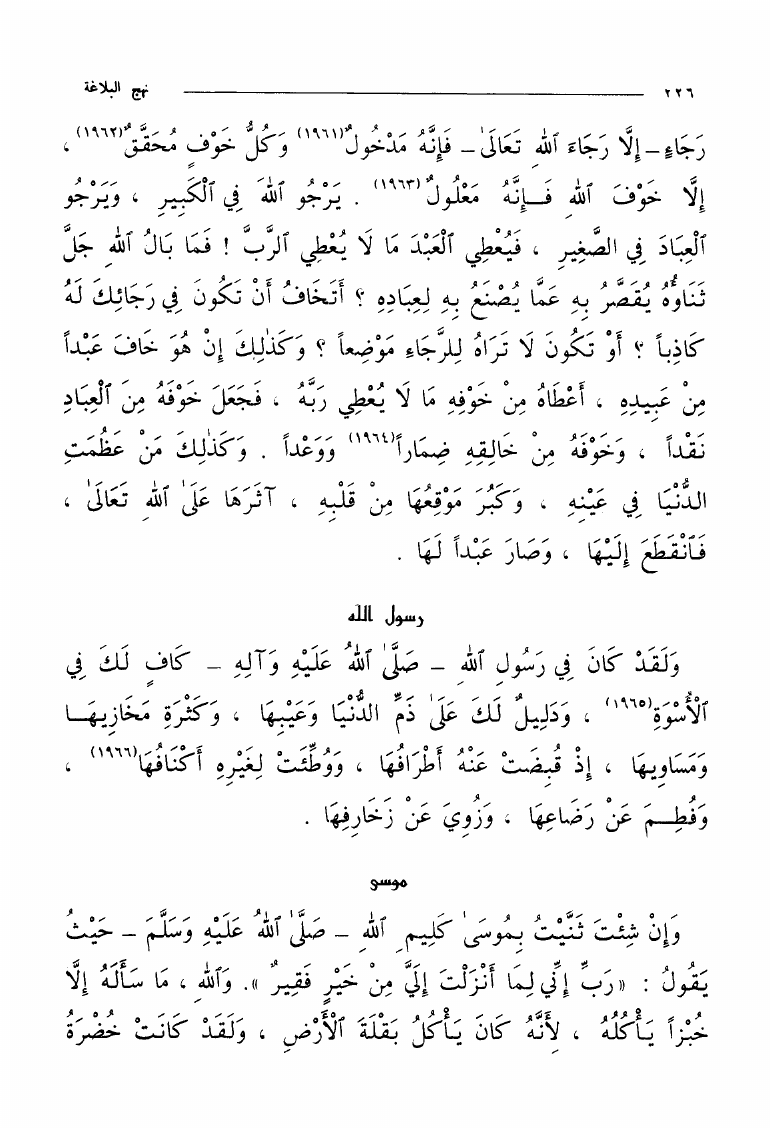 ٢٢٦ نهج البلاغة
رَجَاءٍ ـ إِلَّا رَجَاءَ ٱللهِ تَعَالَىٰ ـ فَإِنَّهُ مَدْخُولٌ(١٩٦١) وَكُلُّ خَوْفٍ مُحَقَّقٌ(١٩٦٢) ،
إِلَّا خَوْفَ ٱللهِ فَـإِنَّهُ مَعْلُولٌ(١٩٦٣) . يَرْجُو ٱللهَ فِي ٱلْكَبِيرِ ، وَيَرْجُو
ٱلْعِبَادَ فِي الصَّغِيرِ ، فَيُعْطِي ٱلْعَبْدَ مَا لَا يُعْطِي ٱلرَّبَّ ! فَمَا بَالُ ٱللهِ جَلَّ
ثَنَاؤُهُ يُقَصَّرُ بِهِ عَمَّا يُصْنَعُ بِهِ لِعِبَادِهِ ؟ أَتَخَافُ أَنْ تَكُونَ فِي رَجَائِكَ لَهُ
كَاذِباً ؟ أَوْ تَكُونَ لَا تَرَاهُ لِلرَّجَاءِ مَوْضِعاً ؟ وَكَذٰلِكَ إِنْ هُوَ خَافَ عَبْداً
مِنْ عَبِيدِهِ ، أَعْطَاهُ مِنْ خَوْفِهِ مَا لَا يُعْطِي رَبَّهُ ، فَجَعَلَ خَوْفَهُ مِنَ ٱلْعِبَادِ
نَقْداً ، وَخَوْفَهُ مِنْ خَالِقِهِ ضِمَاراً(١٩٦٤) وَوَعْداً . وَكَذٰلِكَ مَنْ عَظُمَتِ
الدُّنْيَا فِي عَيْنِهِ ، وَكَبُرَ مَوْقِعُهَا مِنْ قَلْبِهِ ، آثَرَهَا عَلَىٰ ٱللهِ تَعَالَىٰ ،
فَٱنْقَطَعَ إِلَيْهَا ، وَصَارَ عَبْداً لَهَا .
رسول الله
وَلَقَدْ كَانَ فِي رَسُولِ ٱللهِ ـ صَلَّىٰ ٱللهُ عَلَيْهِ وَآلِهِ ـ كَافٍ لَكَ فِي
ٱلْأُسْوَةِ(١٩٦٥) ، وَدَلِيلٌ لَكَ عَلَىٰ ذَمِّ الدُّنْيَا وَعَيْبِهَا ، وَكَثْرَةِ مَخَازِيهَـا
وَمَسَاوِيهَا ، إِذْ قُبِضَتْ عَنْهُ أَطْرَافُهَا ، وَوُطِّئَتْ لِغَيْرِهِ أَكْنَافُهَا(١٩٦٦) ،
وَفُطِـمَ عَنْ رَضَاعِهَا ، وَزُوِيَ عَنْ زَخَارِفِهَا .
موسى
وَإِنْ شِئْتَ ثَنَّيْتُ بِمُوسَىٰ كَلِيمِ ٱللهِ ـ صَلَّىٰ ٱللهُ عَلَيْهِ وَسَلَّمَ ـ حَيْثُ
يَقُولُ : «رَبِّ إِنِّي لِمَا أَنْزَلْتَ إِلَيَّ مِنْ خَيْرٍ فَقِيرٌ ». وَٱللهِ ، مَا سَأَلَهُ إِلَّا
خُبْزاً يَأْكُلُهُ ، لِأَنَّهُ كَانَ يَأْكُلُ بَقْلَةَ ٱلْأَرْضِ ، وَلَقَدْ كَانَتْ خُضْرَةُ